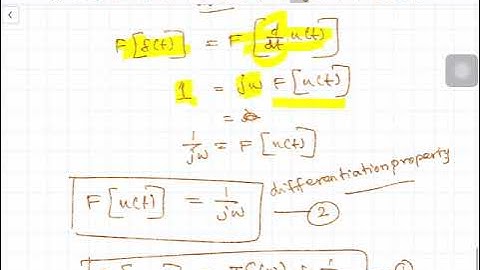 F[δ(t)] = F[d/dt u(t)]
1 = jω F[u(t)]
=
1/jω = F[u(t)]
F[u(t)] = 1/jω
differentiation property
②